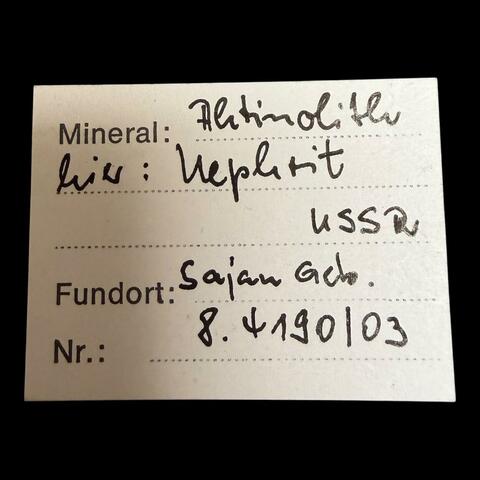 Mineral: Aktinolith
hier: Nephrit
USSR
Fundort: Sajan Geb.
Nr.: 8.4190/03